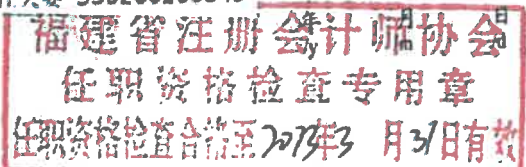 福建省注册会计师协会
年 月 日
y m d
任职资格检查专用章
任职资格检查合格至2013年3月31日有效